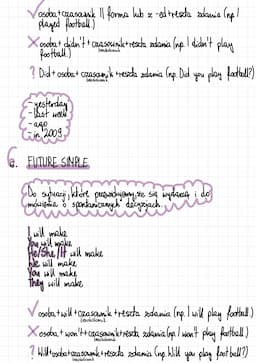 ✓ osoba + czasownik II forma lub z -ed + reszta zdania (np. I
played football)
X osoba + didn't + czasownik + reszta zdania (np. I didn't play
football)
? Did + osoba + czasownik + reszta zdania (np. Did you play football?)
- yesterday
- last week
- ago
- in 2009
6. FUTURE SIMPLE
Do sytuacji, które przewidujemy, że się wydarzą i do
mówienia o spontanicznych decyzjach.
I will make
You will make
He/She/It will make
We will make
You will make
They will make
✓ osoba + will + czasownik + reszta zdania (np. I will play football)
X osoba + won't + czasownik + reszta zdania (np. I won't play football)
? Will + osoba + czasownik + reszta zdania (np. Will you play football?)